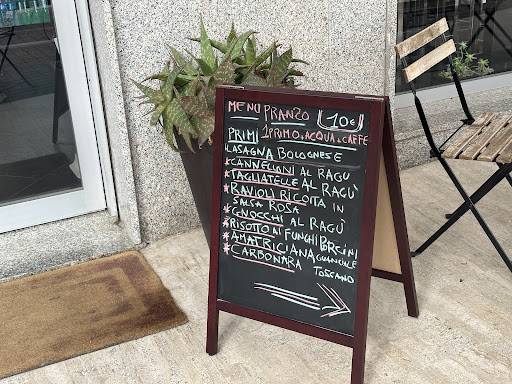 MENU PRANZO 10€
PRIMI 1 PRIMO + ACQUA + CAFFE
LASAGNA BOLOGNESE
* CANNELLONI AL RAGÚ
* TAGLIATELLE AL RAGÚ
* RAVIOLI RICOTTA IN
SALSA ROSA
* GNOCCHI AL RAGÚ
* RISOTTO AI FUNGHI PORCINI
* AMATRICIANA GUANCIALE
* CARBONARA TOSCANO